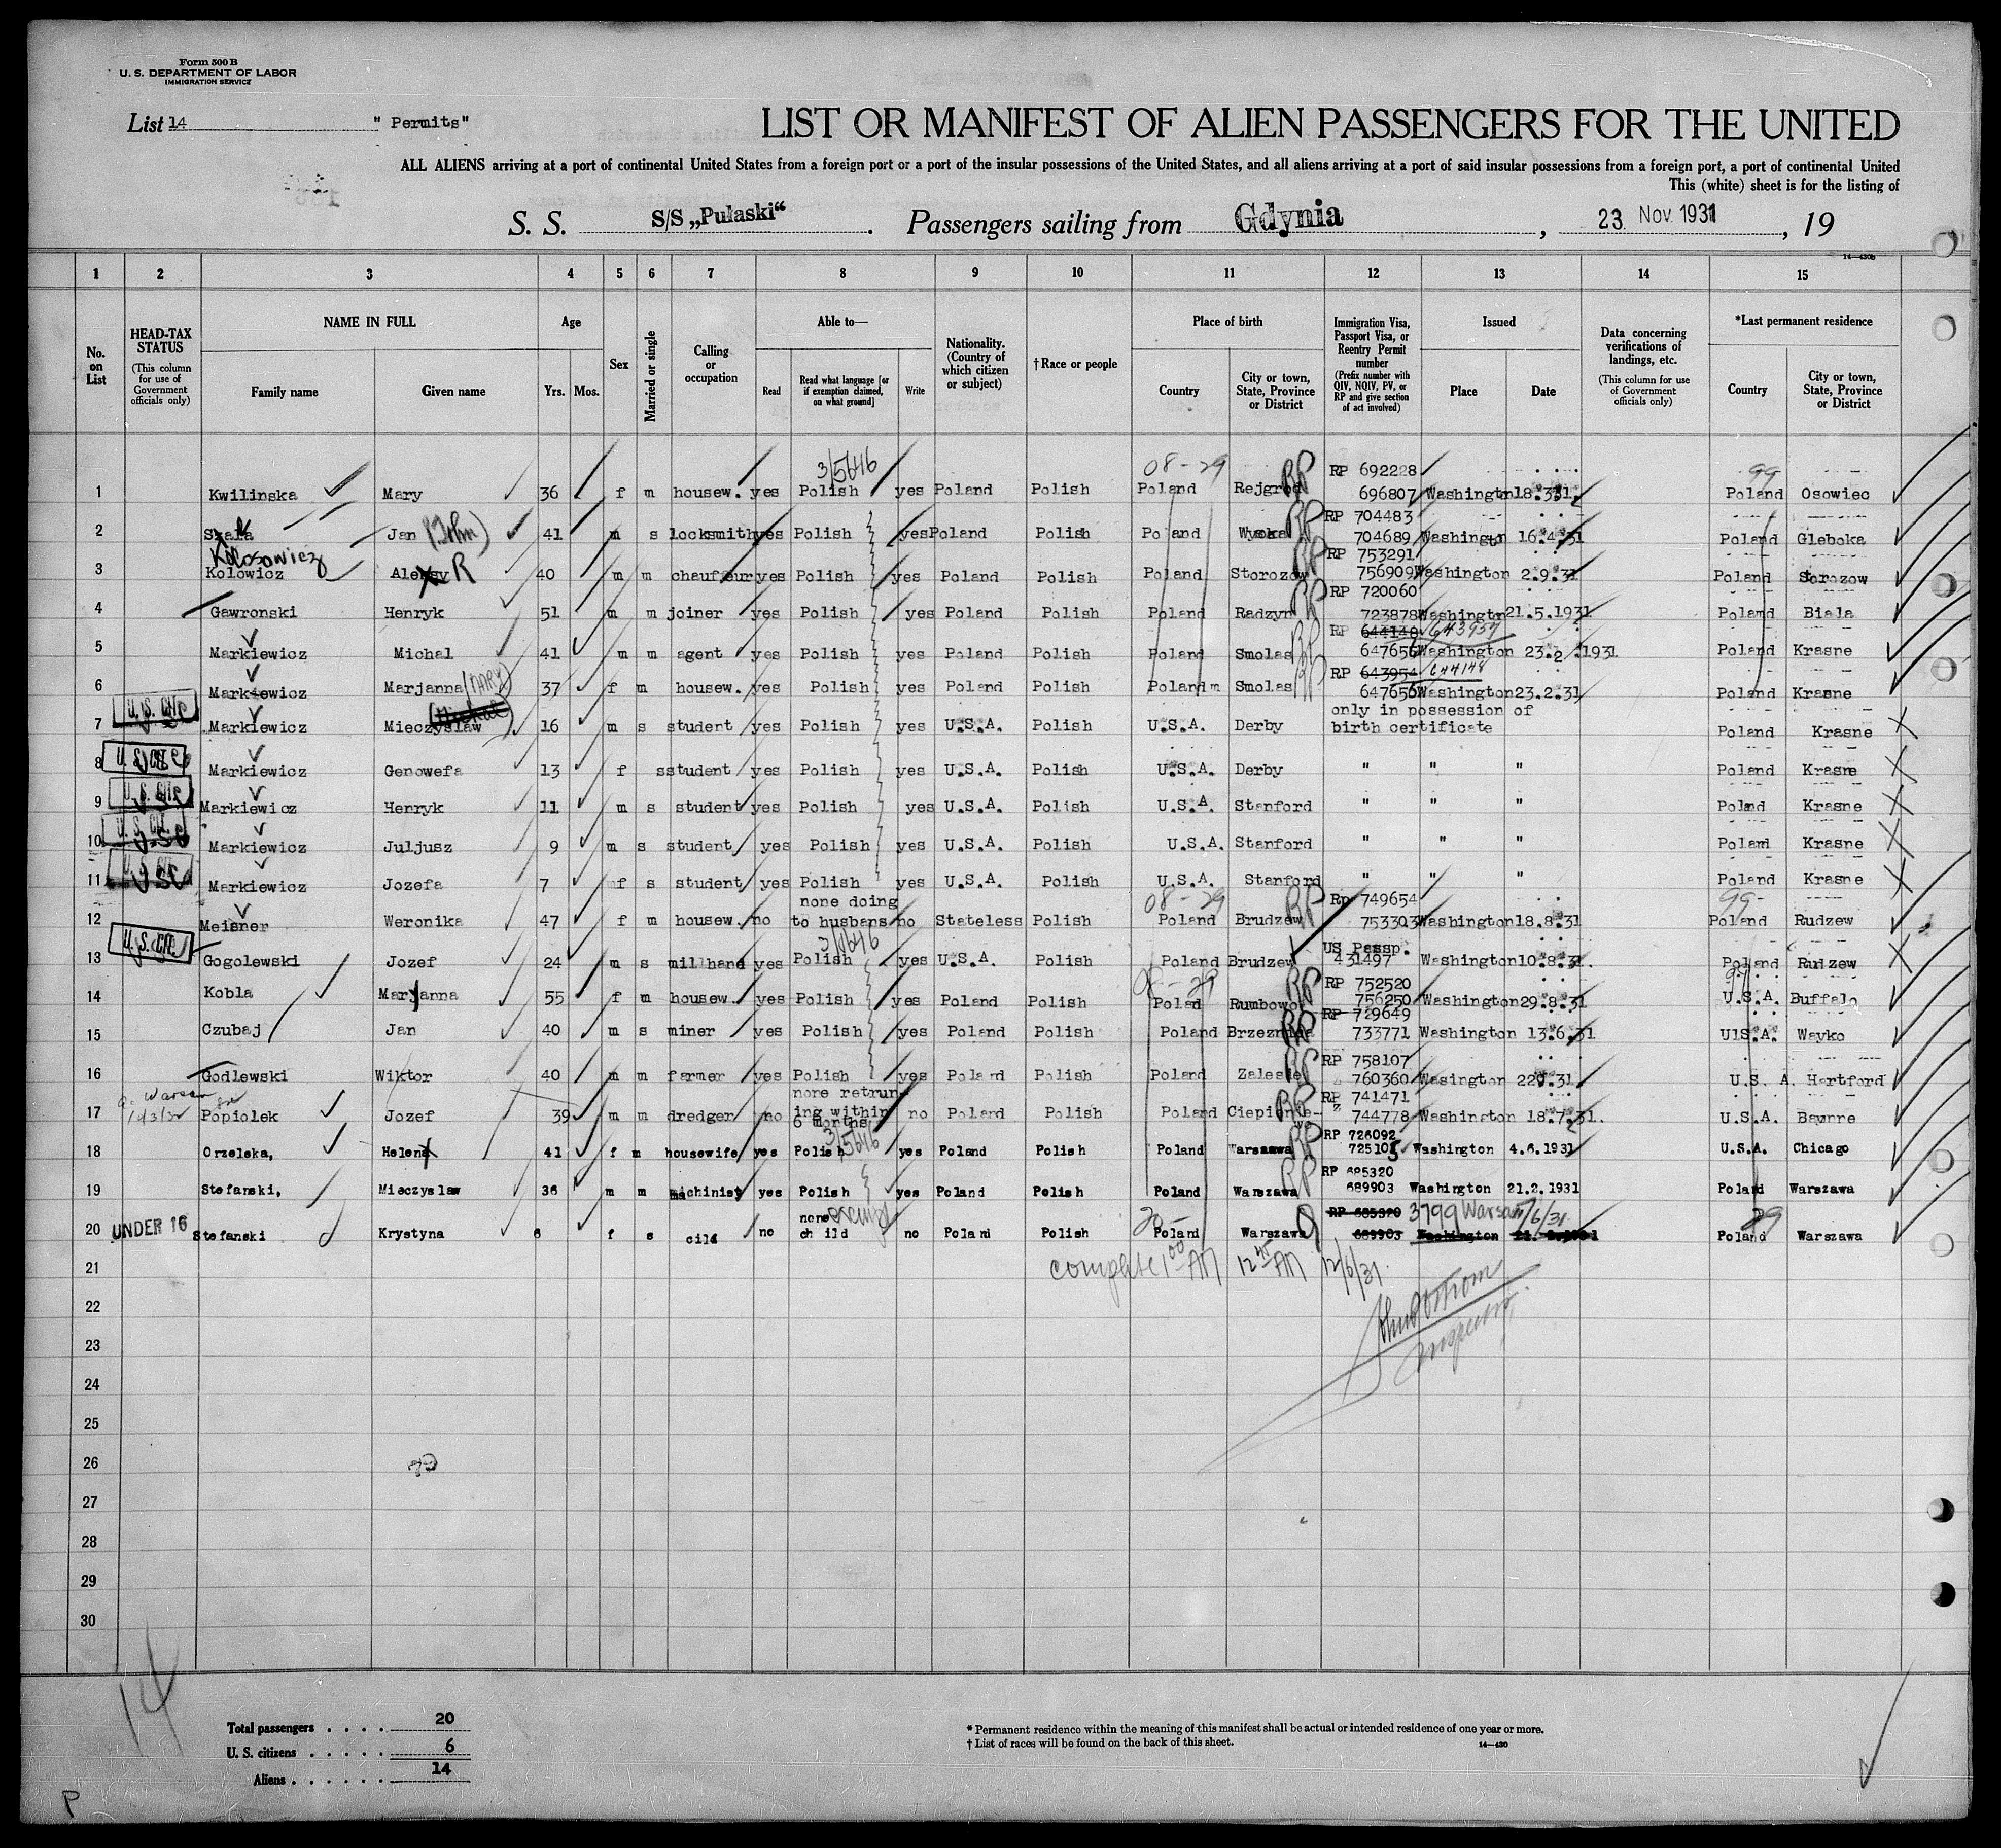 Form 500 B
U. S. DEPARTMENT OF LABOR
IMMIGRATION SERVICE
List 14 " Permits"
LIST OR MANIFEST OF ALIEN PASSENGERS FOR THE UNITED
ALL ALIENS arriving at a port of continental United States from a foreign port or a port of the insular possessions of the United States, and all aliens arriving at a port of said insular possessions from a foreign port, a port of continental United
This (white) sheet is for the listing of
S. S. S/S „Pułaski“ . Passengers sailing from Gdynia , 23. Nov. 1931 , 19
14—430b
1 2 3 4 5 6 7 8 9 10 11 12 13 14 15
No. on List
HEAD-TAX STATUS
(This column for use of Government officials only)
NAME IN FULL
Family name Given name
Age
Yrs. Mos.
Sex
Married or single
Calling or occupation
Able to—
Read Read what language [or if exemption claimed, on what ground] Write
Nationality. (Country of which citizen or subject)
† Race or people
Place of birth
Country City or town, State, Province or District
Immigration Visa, Passport Visa, or Reentry Permit number
(Prefix number with QIV, NQIV, PV, or RP and give section of act involved)
Issued
Place Date
Data concerning verifications of landings, etc.
(This column for use of Government officials only)
*Last permanent residence
Country City or town, State, Province or District
3/5616 08-29 RP 692228 99
1 Kwilinska Mary 36 f m housew. yes Polish yes Poland Polish Poland Rejgrod RP 696807 Washington 18.3.31. Poland Osowiec
RP 704483
2 Jan (John) 41 m s locksmith yes Polish yes Poland Polish Poland Wysoka RP 704689 Washington 16.4.31 Poland Gleboka
Kolosowicz RP 753291
3 Kolowicz Aleksy R 40 m m chaufeur yes Polish yes Poland Polish Poland Storozow RP 756909 Washington 2.9.31 Poland Storozow
RP 720060
4 Gawronski Henryk 51 m m joiner yes Polish yes Poland Polish Poland Radzyn RP 723878 Washington 21.5.1931 Poland Biala
RP 644140 643954
5 Markiewicz Michal 41 m m agent yes Polish yes Poland Polish Poland Smolas RP 647656 Washington 23.2.1931 Poland Krasne
RP 643954 644148
6 Markiewicz Marjanna (MARY) 37 f m housew. yes Polish yes Poland Polish Poland m Smolas RP 647656 Washington 23.2.31 Poland Krasne
U. S. Cit. (Michal) only in possession of
7 Markiewicz Mieczyslaw 16 m s student yes Polish yes U.S.A. Polish U.S.A. Derby birth certificate Poland Krasne X
8 U. S. Cit. Markiewicz Genowefa 13 f s student yes Polish yes U.S.A. Polish U.S.A. Derby " " " Poland Krasne X
9 U. S. Cit. Markiewicz Henryk 11 m s student yes Polish yes U.S.A. Polish U.S.A. Stanford " " " Poland Krasne X
10 U. S. Cit. Markiewicz Juljusz 9 m s student yes Polish yes U.S.A. Polish U.S.A. Stanford " " " Poland Krasne X
11 U. S. Cit. Markiewicz Jozefa 7 f s student yes Polish yes U.S.A. Polish U.S.A. Stanford " " " Poland Krasne X
none doing 08-29 Rp 749654 99-
12 Meisner Weronika 47 f m housew. no to husbans no Stateless Polish Poland Brudzew RP 753303 Washington 18.8.31 Poland Rudzew
U. S. Cit. US Passp.
13 Gogolewski Jozef 24 m s millhand yes Polish yes U.S.A. Polish Poland Brudzew 431497 Washington 10.8.31. Poland Rudzew X
RP 752520
14 Kobla Marjanna 55 f m housew. yes Polish yes Poland Polish Polad Rumbowo RP 756250 Washington 29.8.31 U.S.A. Buffalo
RP 729649
15 Czubaj Jan 40 m s miner yes Polish yes Poland Polish Poland RP 733771 Washington 13.6.31 UlS.A. Wayko
RP 758107
16 Godlewski Wiktor 40 m m farmer yes Polish yes Poland Polish Poland Zalesie RP 760360 Wasington U.S. A. Hartford
none retrun- RP 741471
17 Popiolek Jozef 39 m m dredger no ing within no Poland Polish Poland RP 744778 Washington 18.7.31. U.S.A. Bayonne
6 months
3/5616 RP 726092
18 Orzelska, Helena 41 f m housewife yes Polish yes Poland Polish Poland Warszawa RP 725105 Washington 4.6.1931 U.S.A. Chicago
RP 685320
19 Stefanski, Mieczyslaw 36 m m machinist yes Polish yes Poland Polish Poland Warszawa RP 689903 Washington 21.2.1931 Poland Warszawa
none exempt 20- RP 685320 3799 Warsaw 11/6/31 29
20 UNDER 16 Stefanski Krystyna 6 f s cild no child no Poland Polish Poland Warszawa 689903 Washington Poland Warszawa
21 complete 1 00 AM 12 45 AM 12/6/31.
22
23 Inspector
24
25
26
27
28
29
30
14
Total passengers . . . . 20
U. S. citizens . . . . . 6
Aliens . . . . . . 14
* Permanent residence within the meaning of this manifest shall be actual or intended residence of one year or more.
† List of races will be found on the back of this sheet. 14—430
P